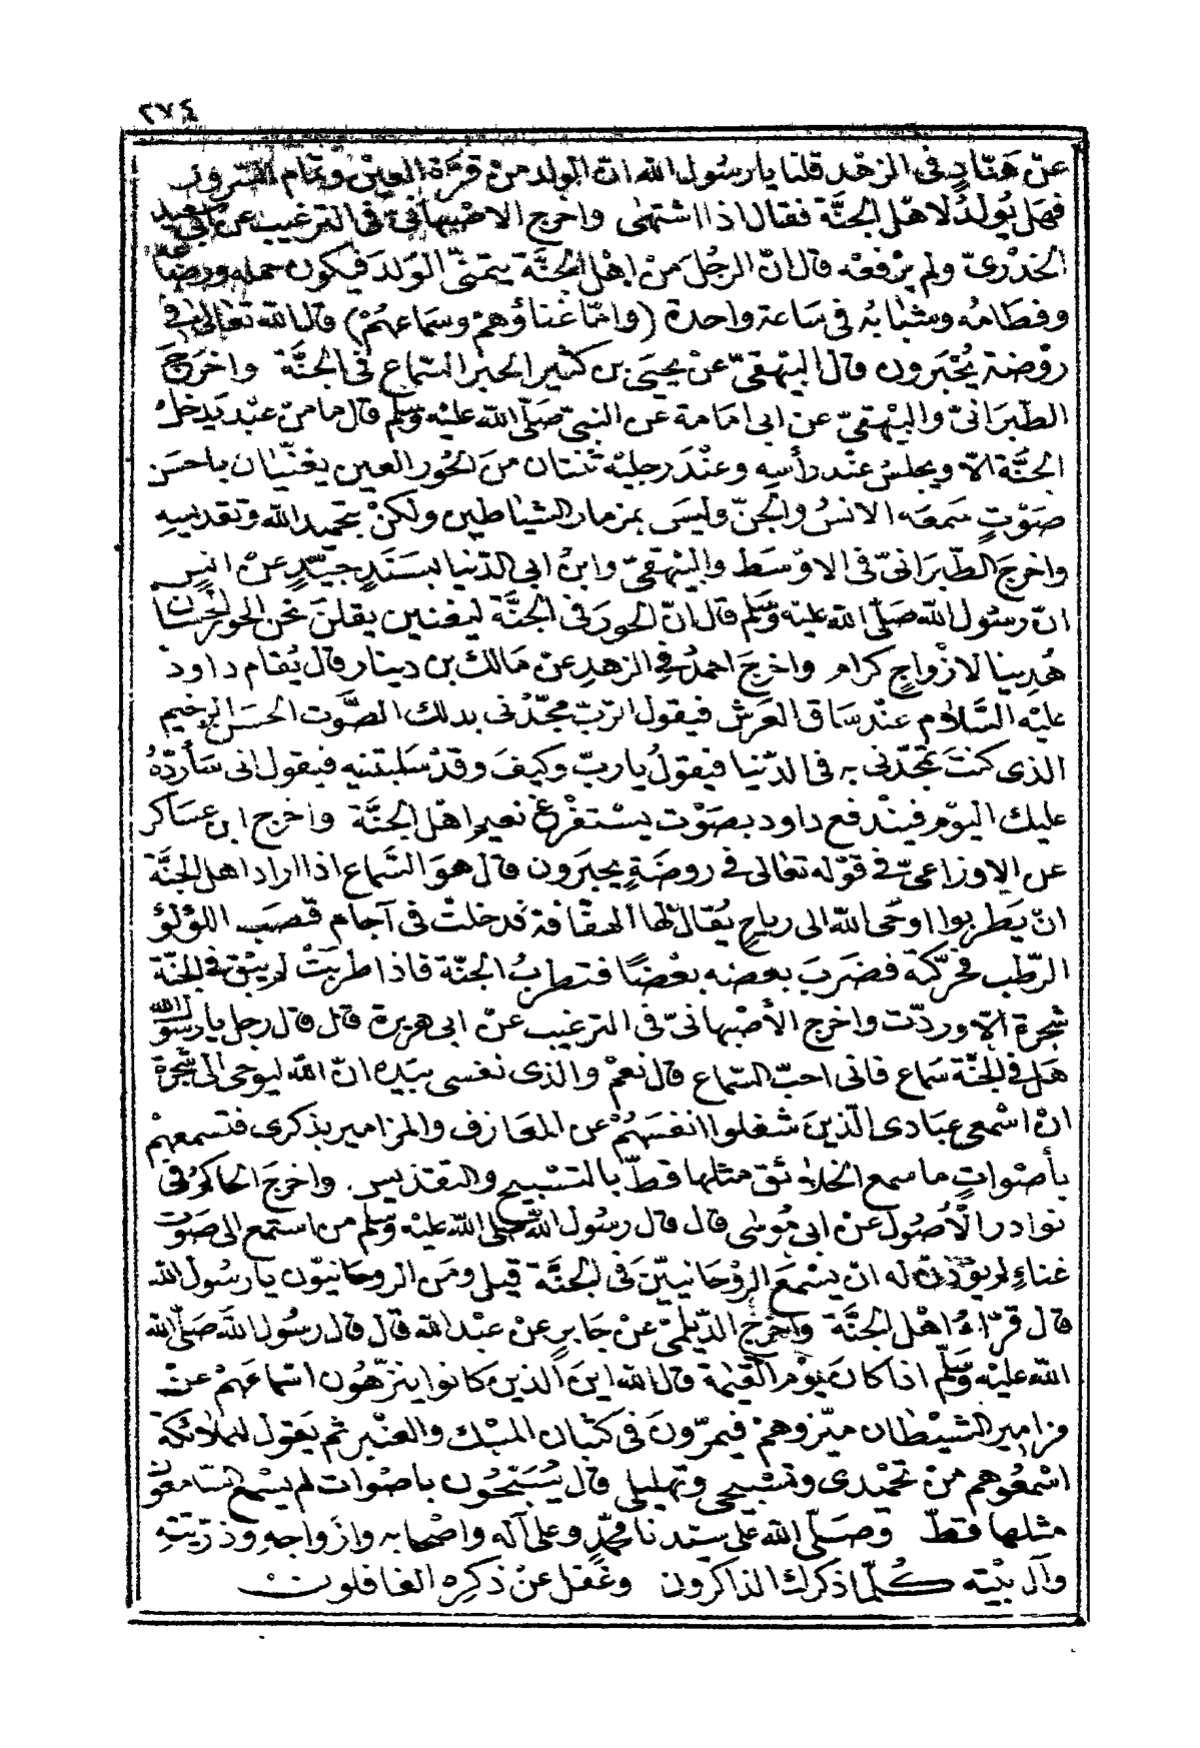 ٢٧٤
عن هنّاد في الزهد قلنا يا رسول الله ان الولد من قرّة العين وتمام السرور
فهل يُولدُ لاهل الجنَّة فقال اذا اشتهى واخرج الاصبهانيّ في الترغيب عن ابي سعيد
الخدْريّ ولم يرْفعْه قال انّ الرجُلَ منْ اهْل الجنَّة يتمنّى الولدَ فيكون حمله ورضاعُه
وفطامُه وشبابُه في سَاعة واحدة (وامّا غناؤهمْ وسَماعهُمْ) قال الله تعَالى في
روْضة يُحْبَرون قال البيْهقيّ عنْ يحيَى بن كثير الحبر السّماع في الجنَّة واخرَجَ
الطّبرَانيّ والبيْهقيّ عن ابي امَامة عن النبيّ صَلّى الله عليْه وسَلّم قال ما منْ عبْد يَدخل
الجنَّة الاّ ويجلسُ عنْد رأسِه وعنْدَ رجليْه ثنتان منَ الحُور العين يغنّيان باحسَن
صَوْتٍ سَمعَه الانسُ والجنّ وليسَ بمزمار الشيَاطين ولكنْ بتحميد الله وتقديسِهِ
واخرجَ الطّبرَانيّ في الاوْسَط والبيْهقيّ وابنُ ابي الدّنيا بسَندٍ جيّدٍ عنْ انسٍ
انّ رسُول الله صَلّى الله عليْه وسَلّم قال انّ الحورَ في الجنَّة ليغنين يقلنَ نحن الحور الحسَان
هُدِينا لازْواجٍ كرام واخرجَ احمدُ في الزهدِ عنْ مَالك بن دينار قال يُقام داود
عليْه السَّلاَم عنْد سَاق العَرْش فيقول الربّ مجّدْني بذلك الصَّوت الحسَن الرخيم
الذي كنتَ تمجّدُني به في الدّنيا فيقولُ يا ربّ وكيفَ وقدْ سَلبتنيه فيقول اني سَأردّهُ
عليك اليوْم فينْدفع داود بصَوْت يسْتفرغ نعيم اهْل الجنَّة واخرج ابن عسَاكر
عن الاوزاعيّ في قوْله تعَالى في روضَةٍ يحبَرون قال هوَ السَّماع اذا اراد اهل الجنَّة
انْ يَطربوا اوحَى الله الى رياحٍ يُقالُ لهَا الهفّافة فدخلتْ في آجام قصَب اللؤلؤ
الرّطب فحرّكته فضرَبَ بعضه بعْضًا فتطربُ الجنّة فاذا طربَتْ لم يبْق في الجنّة
شجرة الاّ وردّت واخرج الأصْبهانيّ في الترغيب عنْ ابي هريرة قال قال رجل يا رسُول الله
هَل في الجنَّة سَماع فاني احبّ السّماع قال نعمْ والذي نفسي بيَدِه انّ الله ليوحي الى شجرة
انْ اسْمعي عبَادي الّذينَ شغلوا انفسَهُمْ عن المعَازف والمزامير بذكري فتسمعهمْ
بأصْواتٍ ما سمع الخلاَئق مثلها قطّ بالتسْبيح والتقديس. واخرجَ الحَاكم في
نوادر الأصُول عنْ ابي مُوسَى قال قال رسُول الله صَلى الله عليْه وسَلّم من استمع الى صَوْت
غناءٍ لم يؤذَنْ له انْ يسْمعَ الروْحَانيّينَ في الجنَّة قيل ومَن الروحَانيّون يا رسُول الله
قال قرّاءُ اهْل الجنَّة وأخرجَ الدّيلميّ عنْ جَابرٍ عنْ عبْد الله قال قال رسُول الله صَلّى الله
الله عليْه وسَلّم اذا كانَ يوْم القيٰمة قال الله اينَ الّذين كانوا ينزّهُون اسْماعَهمْ عنْ
مزامير الشيْطان ميّزوهمْ فيمرّونَ في كثبان المسْك والعنْبر ثم يَقول للملائكة
اسْمعُوهم منْ تحْميْدي وتسْبيحي وتهليلي قال يُسَبّحُون باصْوات لم يسْمع السّامعُون
مثلها قطّ وصَلّى الله على سيّدنا محمّدٍ وعلى آله واصْحابه وازْواجهِ وذرّيّتهِ
وآل بيْته كُلّما ذكرك الذاكرون وغفل عنْ ذكرِه الغافلون